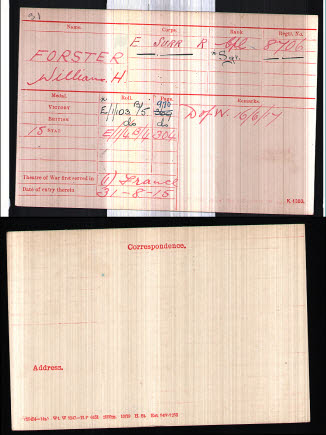 31
Name. Corps. Rank. Regtl. No.
E. Surr. R. Cpl. 8706
FORSTER * Sgt.
William. H.
Medal. Roll. Page. Remarks.
VICTORY E/1/103 B/5
BRITISH do do D of W. 16/6/17
15 STAR E/1/4 B/4 304
Theatre of War first served in (1) France
Date of entry therein 31-8-15
K 1380.
Correspondence.
Address.